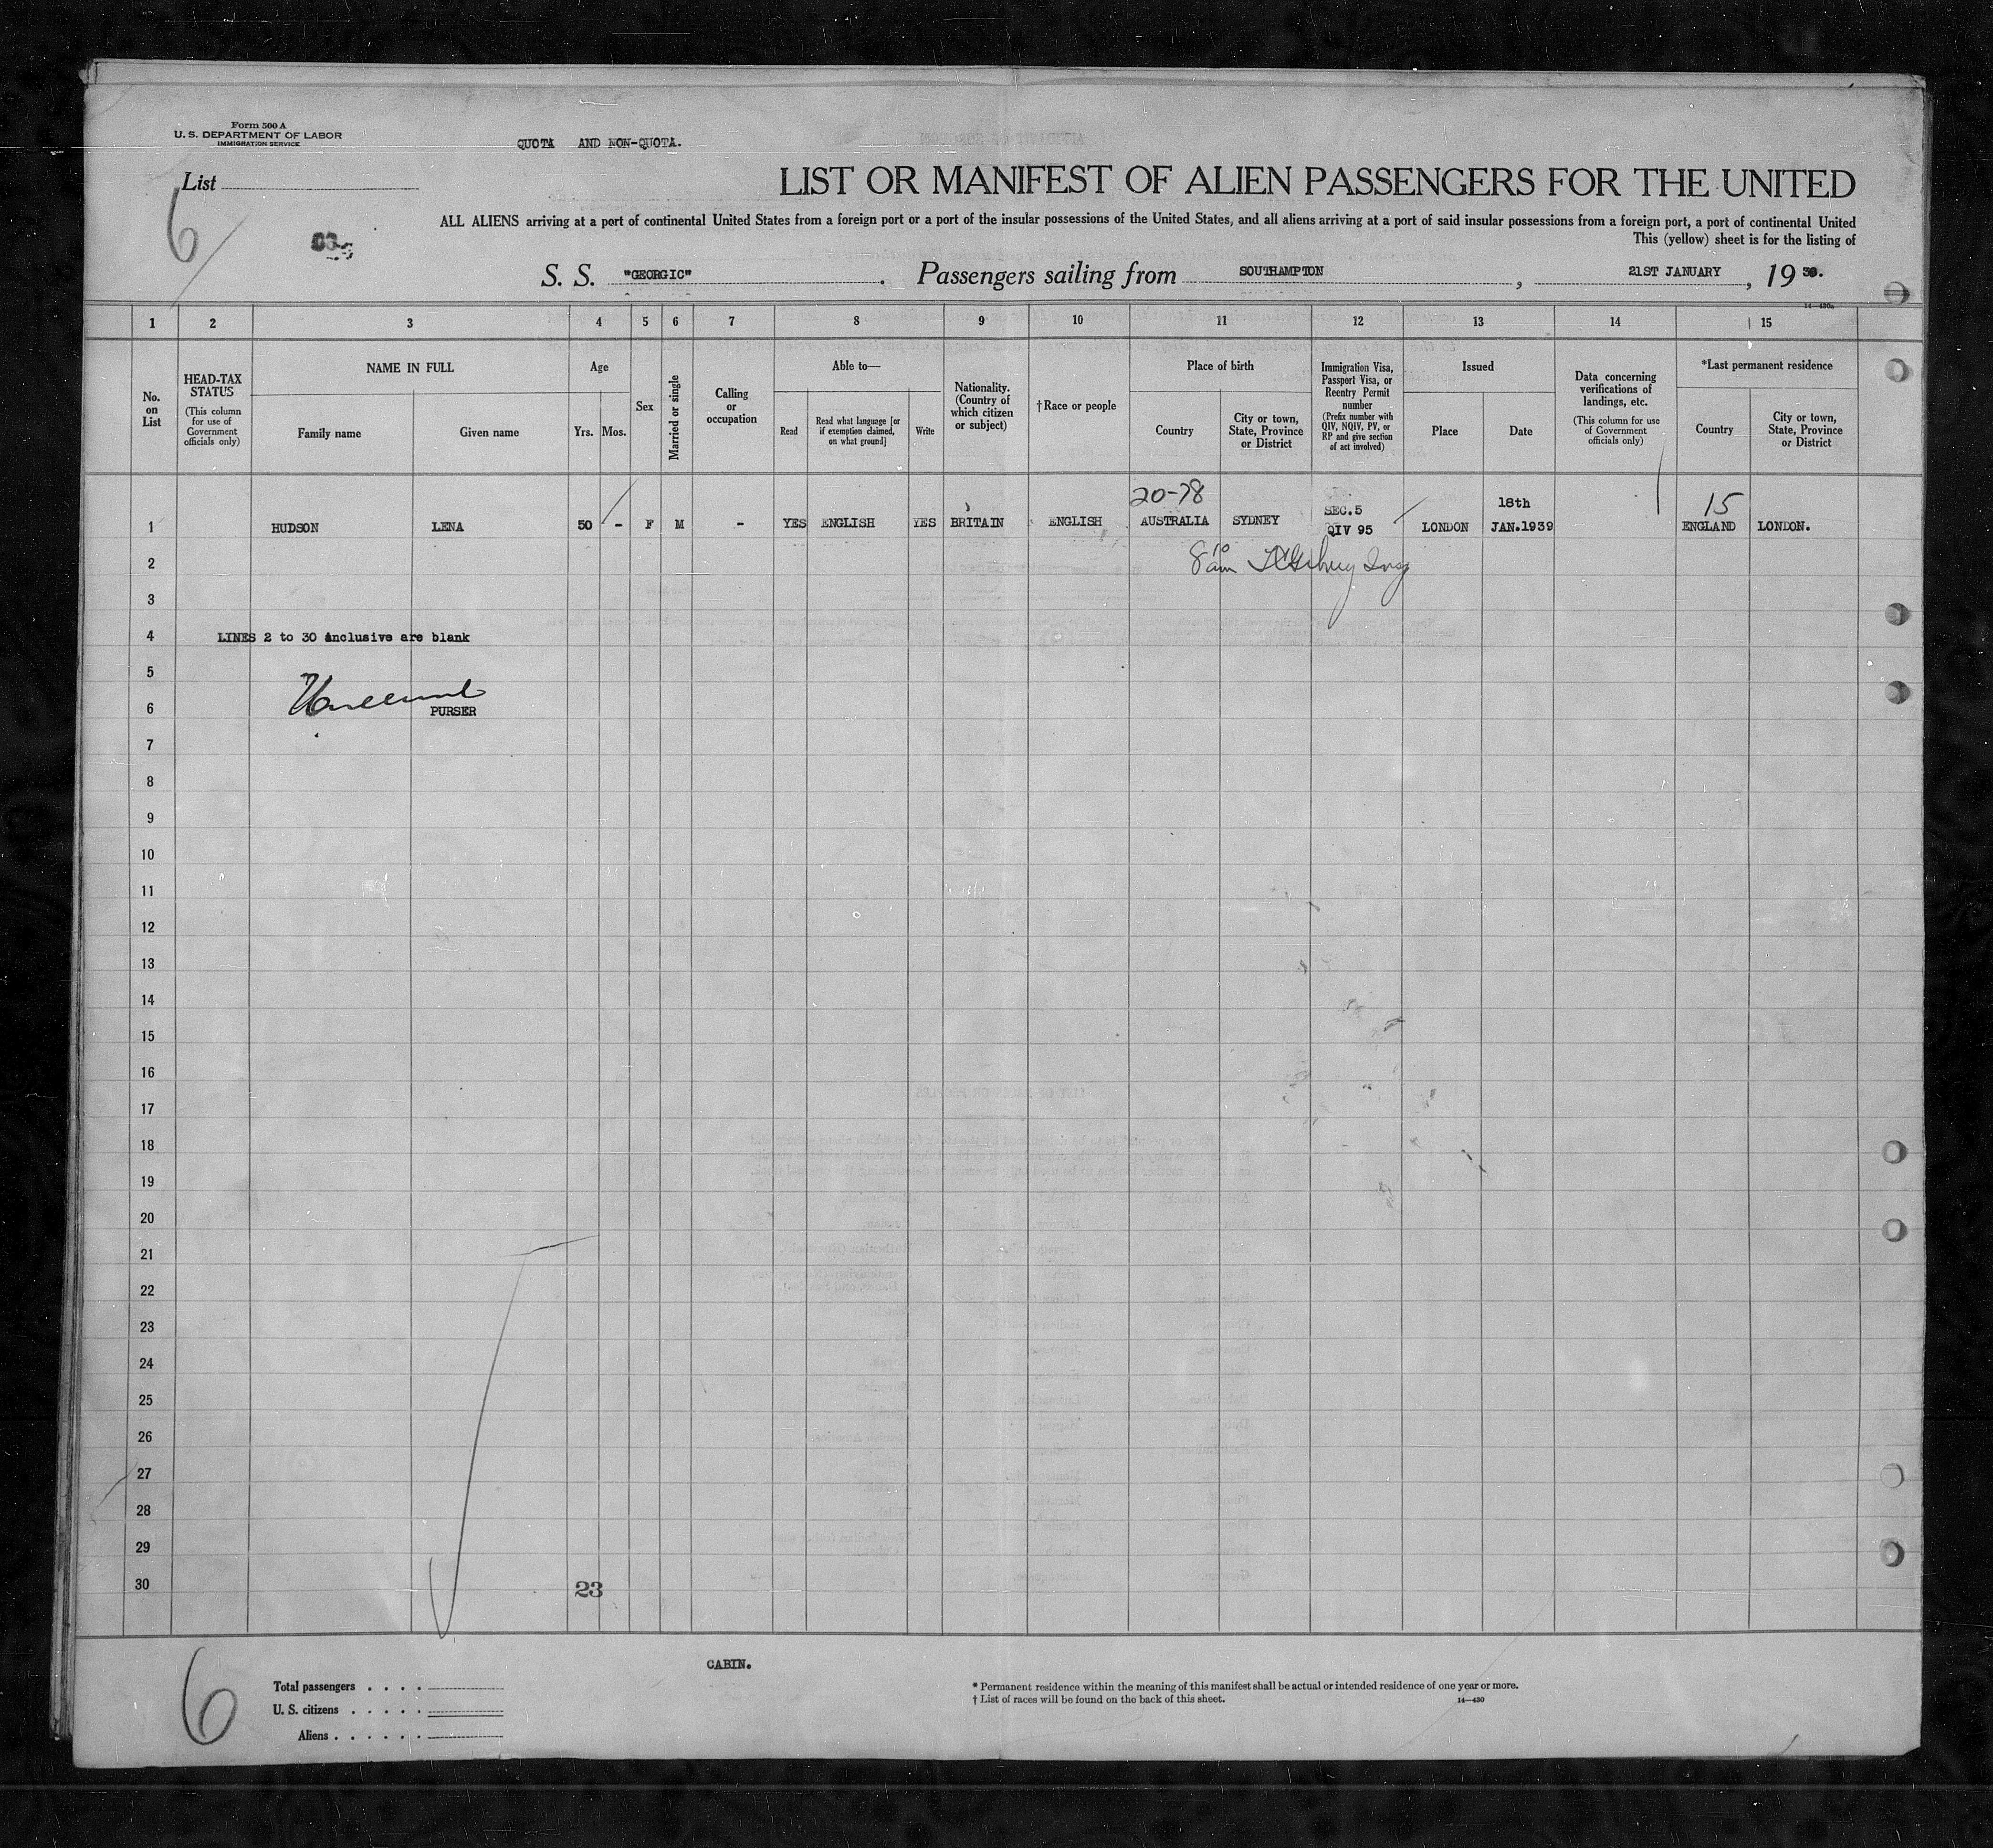 Form 500 A
U. S. DEPARTMENT OF LABOR
IMMIGRATION SERVICE
QUOTA AND NON-QUOTA.
List
6
LIST OR MANIFEST OF ALIEN PASSENGERS FOR THE UNITED
ALL ALIENS arriving at a port of continental United States from a foreign port or a port of the insular possessions of the United States, and all aliens arriving at a port of said insular possessions from a foreign port, a port of continental United
This (yellow) sheet is for the listing of
S. S. "GEORGIC". Passengers sailing from SOUTHAMPTON, 21ST JANUARY, 19 39.
1 2 3 4 5 6 7 8 9 10 11 12 13 14 15
No. on List
HEAD-TAX STATUS
(This column for use of Government officials only)
NAME IN FULL
Family name
Given name
Age
Yrs. Mos.
Sex
Married or single
Calling or occupation
Able to—
Read
Read what language [or if exemption claimed, on what ground]
Write
Nationality. (Country of which citizen or subject)
† Race or people
Place of birth
Country
City or town, State, Province or District
Immigration Visa, Passport Visa, or Reentry Permit number
(Prefix number with QIV, NQIV, PV, or RP and give section of act involved)
Issued
Place
Date
Data concerning verifications of landings, etc.
(This column for use of Government officials only)
*Last permanent residence
Country
City or town, State, Province or District
20-78
15
1 HUDSON LENA 50 - F M - YES ENGLISH YES BRITAIN ENGLISH AUSTRALIA SYDNEY SEC.5 QIV 95 LONDON 18th JAN.1939 ENGLAND LONDON.
2 8 10 am
3
4 LINES 2 to 30 inclusive are blank
5
6 PURSER
7
8
9
10
11
12
13
14
15
16
17
18
19
20
21
22
23
24
25
26
27
28
29
30
23
CABIN.
6
Total passengers
U. S. citizens
Aliens
* Permanent residence within the meaning of this manifest shall be actual or intended residence of one year or more.
† List of races will be found on the back of this sheet.
14—430